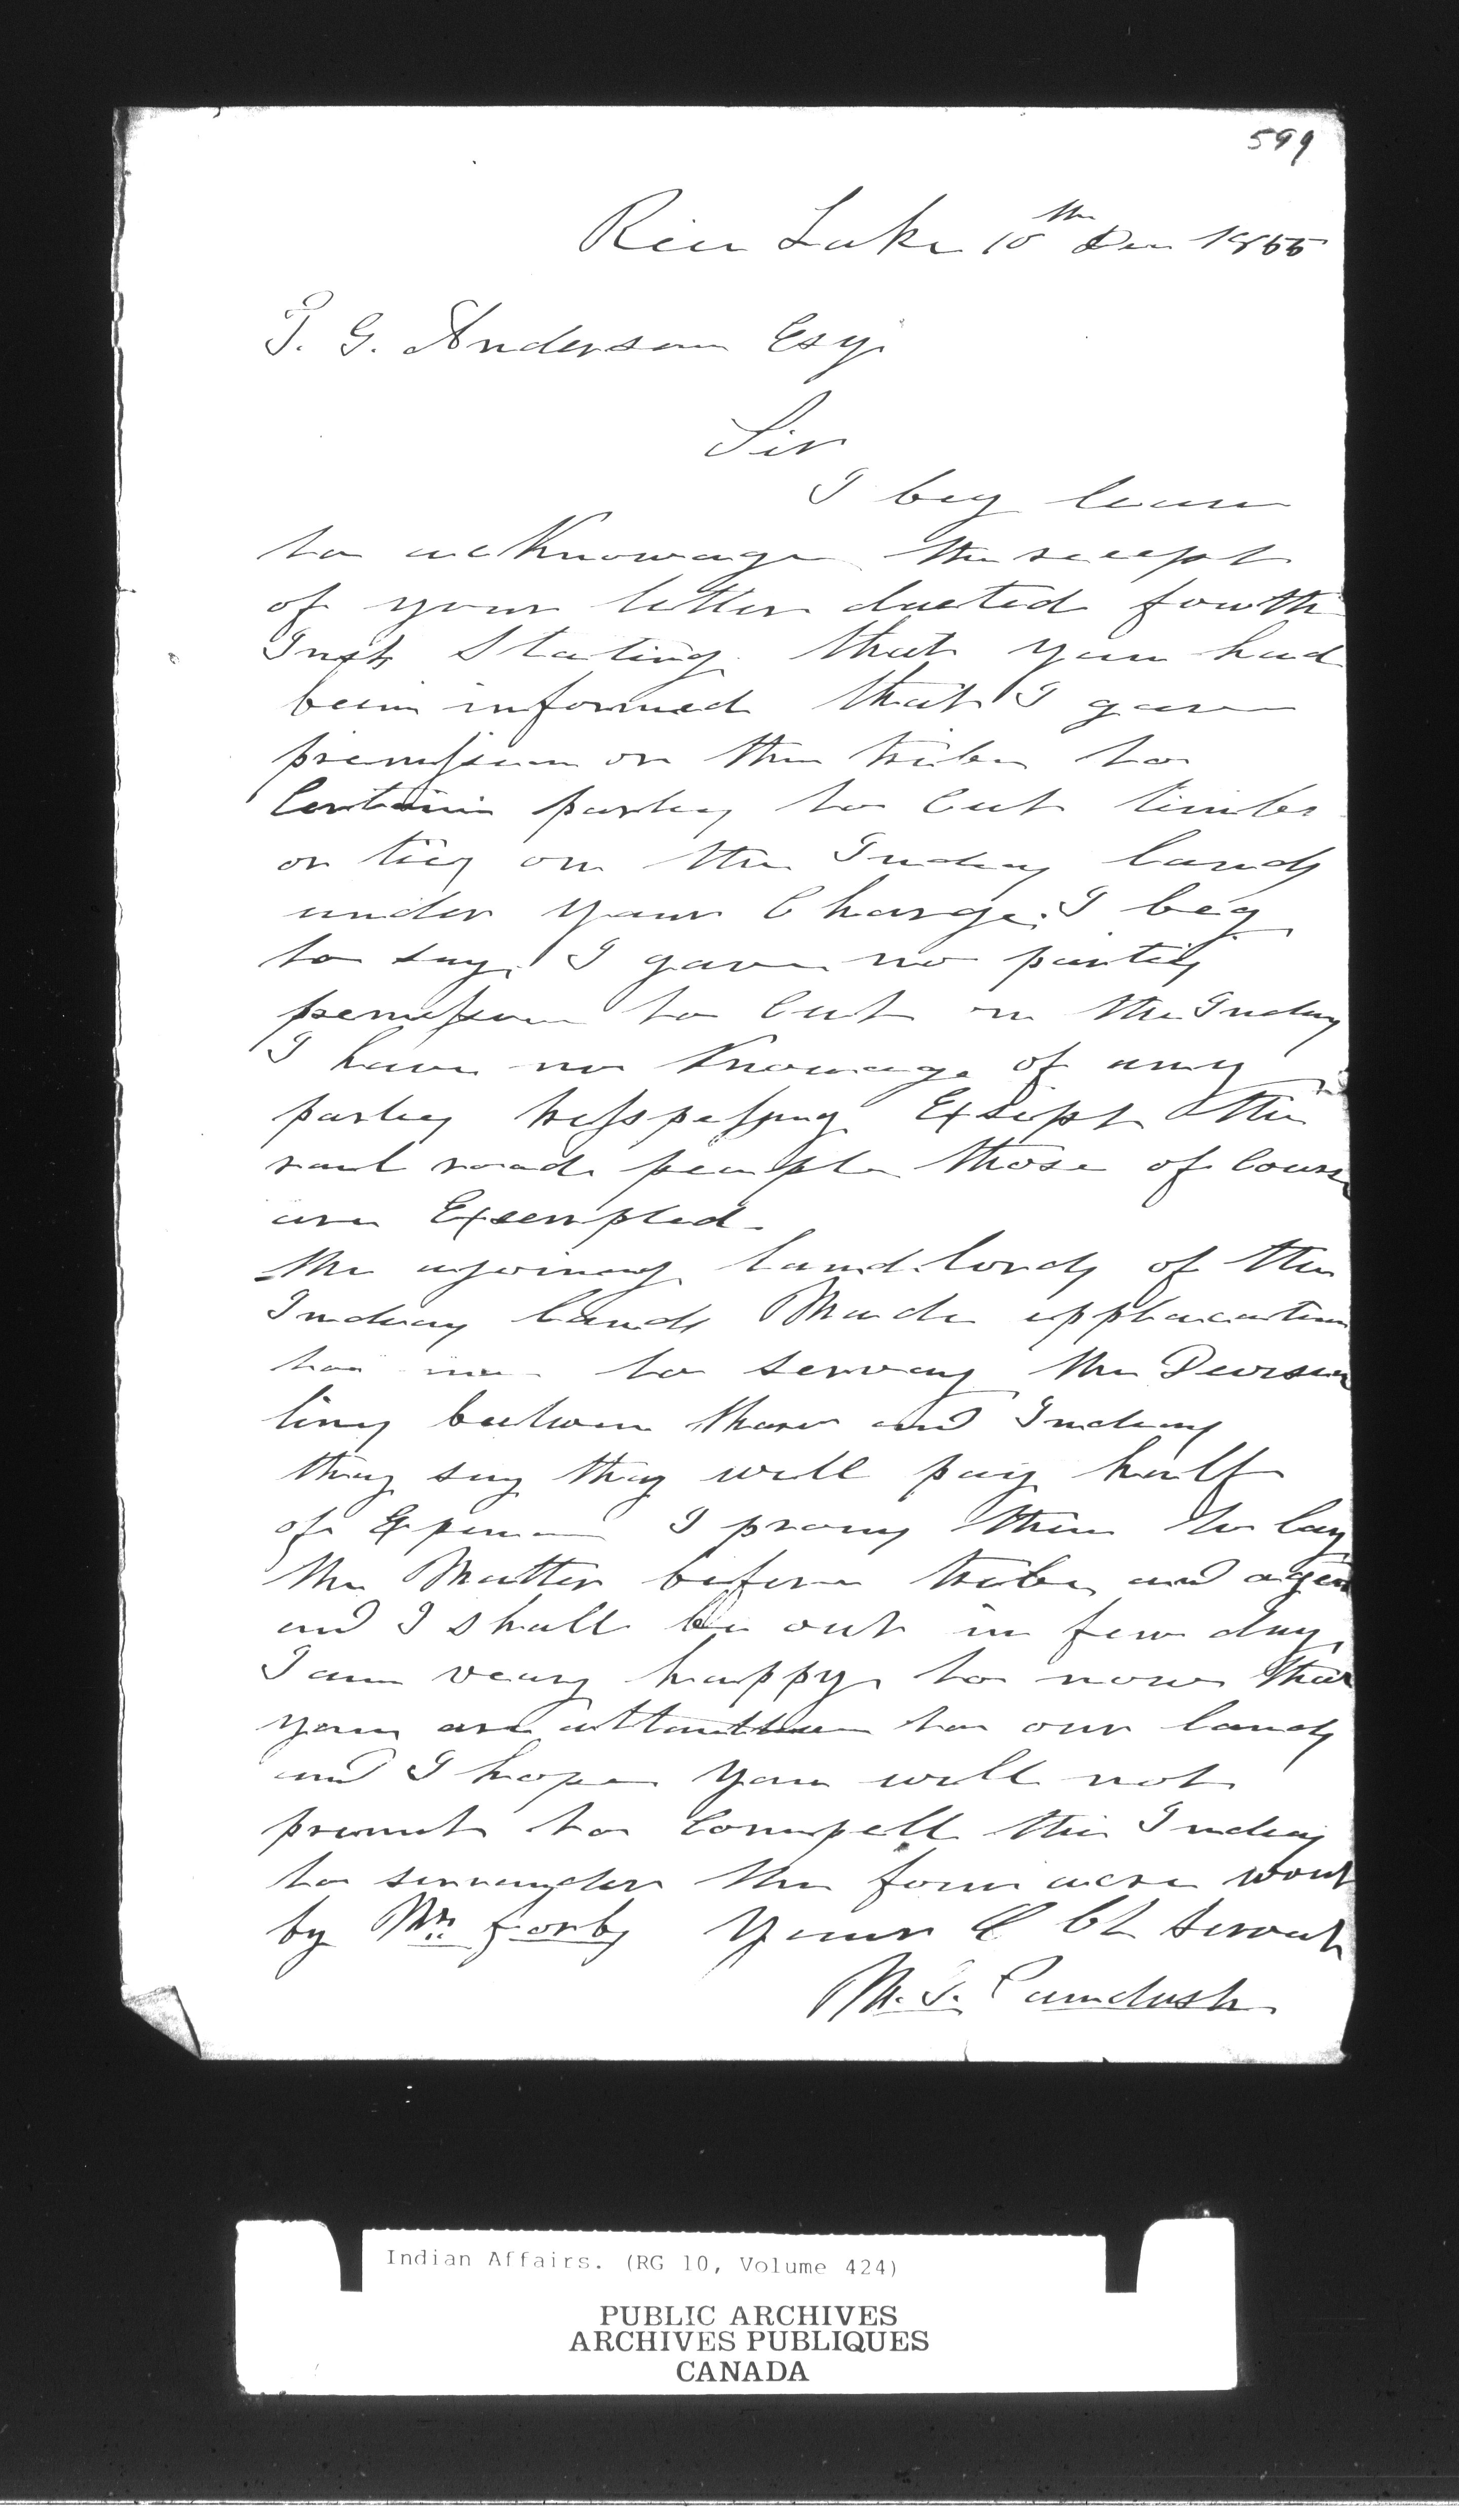 599
Rice Lake 10th Dec 1855
T. G. Anderson Esq
Sir
I beg leave
to acKnowage the receept
of your letter dacted fowth
Inst Stating that you had
been informed that I gave
premission or the tribe to
Certain partey to Cut timber
or tiey on the Indiay landy
under your Charge. I beg
to say I gave no partiey
permission to Cut on the Indiay
I have no Knowage of any
partey tresspassing Exsept the
rail road people those of Cours
are Exsempted
the ajoining land lordy of the
Indiay lands Made applacation
to me to servay the
liny between thare and Indiay
thay say thay will pay half
of I promy them to lay
the Matter before tribe and agen
and I shall be out in few day
I am veary happy to now that
you are to our landy
and I hope you will not
premit to Compell the Indiay
to surrander the four acre wont
by Mr. Yours Ob Servant
M. G. Paudash
Indian Affairs. (RG 10, Volume 424)
PUBLIC ARCHIVES
ARCHIVES PUBLIQUES
CANADA